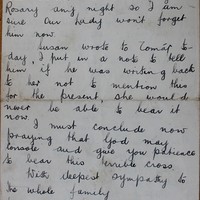 Rosary any night so I am
sure Our Lady won't forget
him now.
Susan wrote to Tomás to-
day, I put in a note to tell
him if he was writing back
to her not to mention this
for the present, she would
never be able to bear it
now
I must conclude now
praying that God may
console and give you patience
to bear this terrible cross
With deepest sympathy to
the whole family